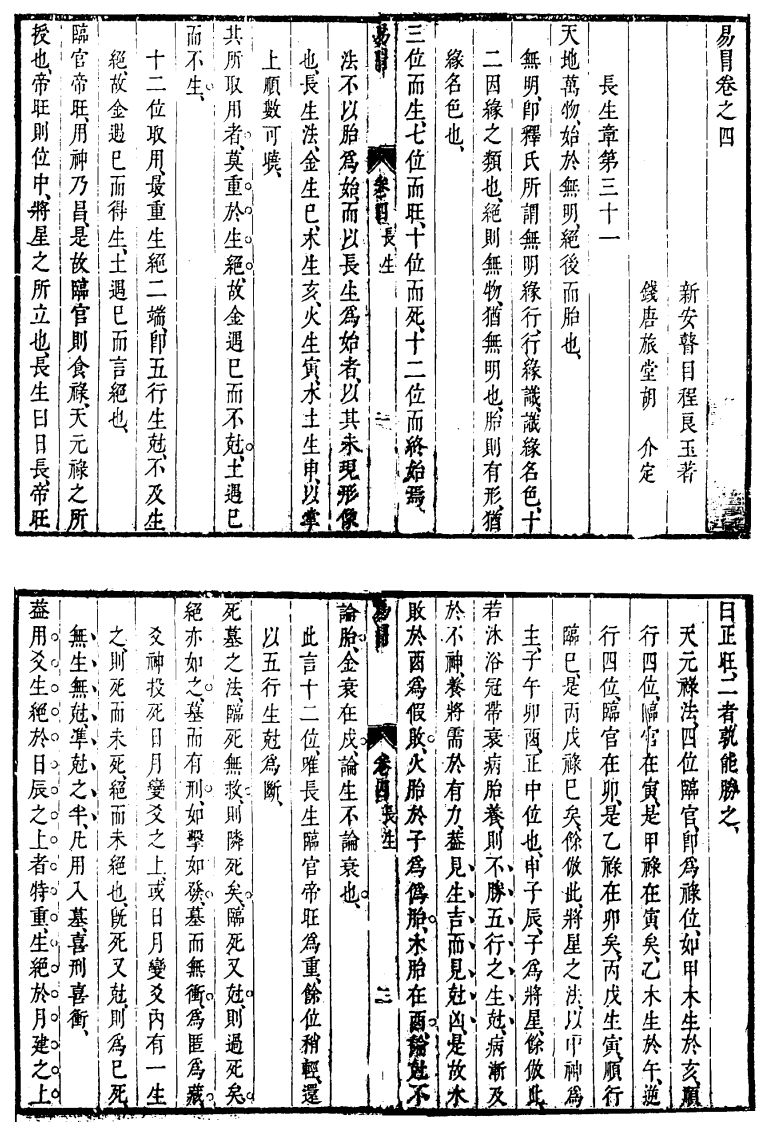 易冒卷之四
新安瞽目程良玉著
錢唐旅堂胡　介定
長生章第三十一
天地萬物、始於無明、絕後而胎也、
無明、卽釋氏所謂無明緣行、行緣識、識緣名色、十
二因緣之類也、絕則無物、猶無明也、胎則有形、猶
緣名色也、
三位而生、七位而旺、十位而死、十二位而終始焉、
易冒　卷四　長生　一
法不以胎爲始、而以長生爲始者、以其未現形像
也、長生法、金生巳、木生亥、火生寅、水土生申、以掌
上順數可曉、
其所取用者、莫重於生絕、故金遇巳而不尅、土遇巳
而不生、
十二位取用、最重生絕二端、卽五行生尅、不及生
絕、故金遇巳而得生、土遇巳而言絕也、
臨官帝旺、用神乃昌、是故臨官則食祿、天元祿之所
授也、帝旺則位中、將星之所立也、長生曰日長、帝旺
日正旺、二者孰能勝之、
天元祿法、四位臨官、卽爲祿位、如甲木生於亥、順
行四位、臨官在寅、是甲祿在寅矣、乙木生於午、逆
行四位、臨官在卯、是乙祿在卯矣、丙戊生寅、順行
臨巳、是丙戊祿巳矣、餘倣此、將星之法、以中神爲
主、子午卯酉、正中位也、申子辰、子爲將星、餘倣此、
若沐浴冠帶衰病胎養、則不勝五行之生尅、病漸及
於不神、養將需於有力、葢見生吉而見尅凶、是故水
敗於酉爲假敗、火胎於子爲僞胎、木胎在酉、論尅不
易冒　卷四　長生　二
論胎、金衰在戌、論生不論衰也、
此言十二位、唯長生臨官帝旺爲重、餘位稍輕、還
以五行生尅爲斷、
死墓之法、臨死無救、則隣死矣、臨死又尅、則過死矣、
絕亦如之、墓而有刑、如擊如發、墓而無衝、爲匿爲藏、
爻神投死日月變爻之上、或日月變爻內有一生
之、則死而未死、絕而未絕也、旣死又尅、則爲巳死、
無生無尅、準尅之半、凡用入墓、喜刑喜衝、
葢用爻生絕於日辰之上者特重、生絕於月建之上